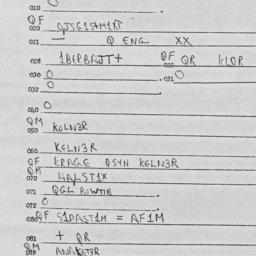 010 0
QF
020 QJSG1S+M1XT
021 — Q ENG XX
028 1BERBAJT+ QF 029 QR KLOR
030 0 .031 0
032 0
040 0
QM
050 KOLN3R
060 KELN3R
QF KRAGE QSYN KELN3R
QM
070 HALST1X
071 QGL POWTIE
072 0
080 QF S1DAST1M = AF1M
081 + QR
QM
089 ANAKET3R